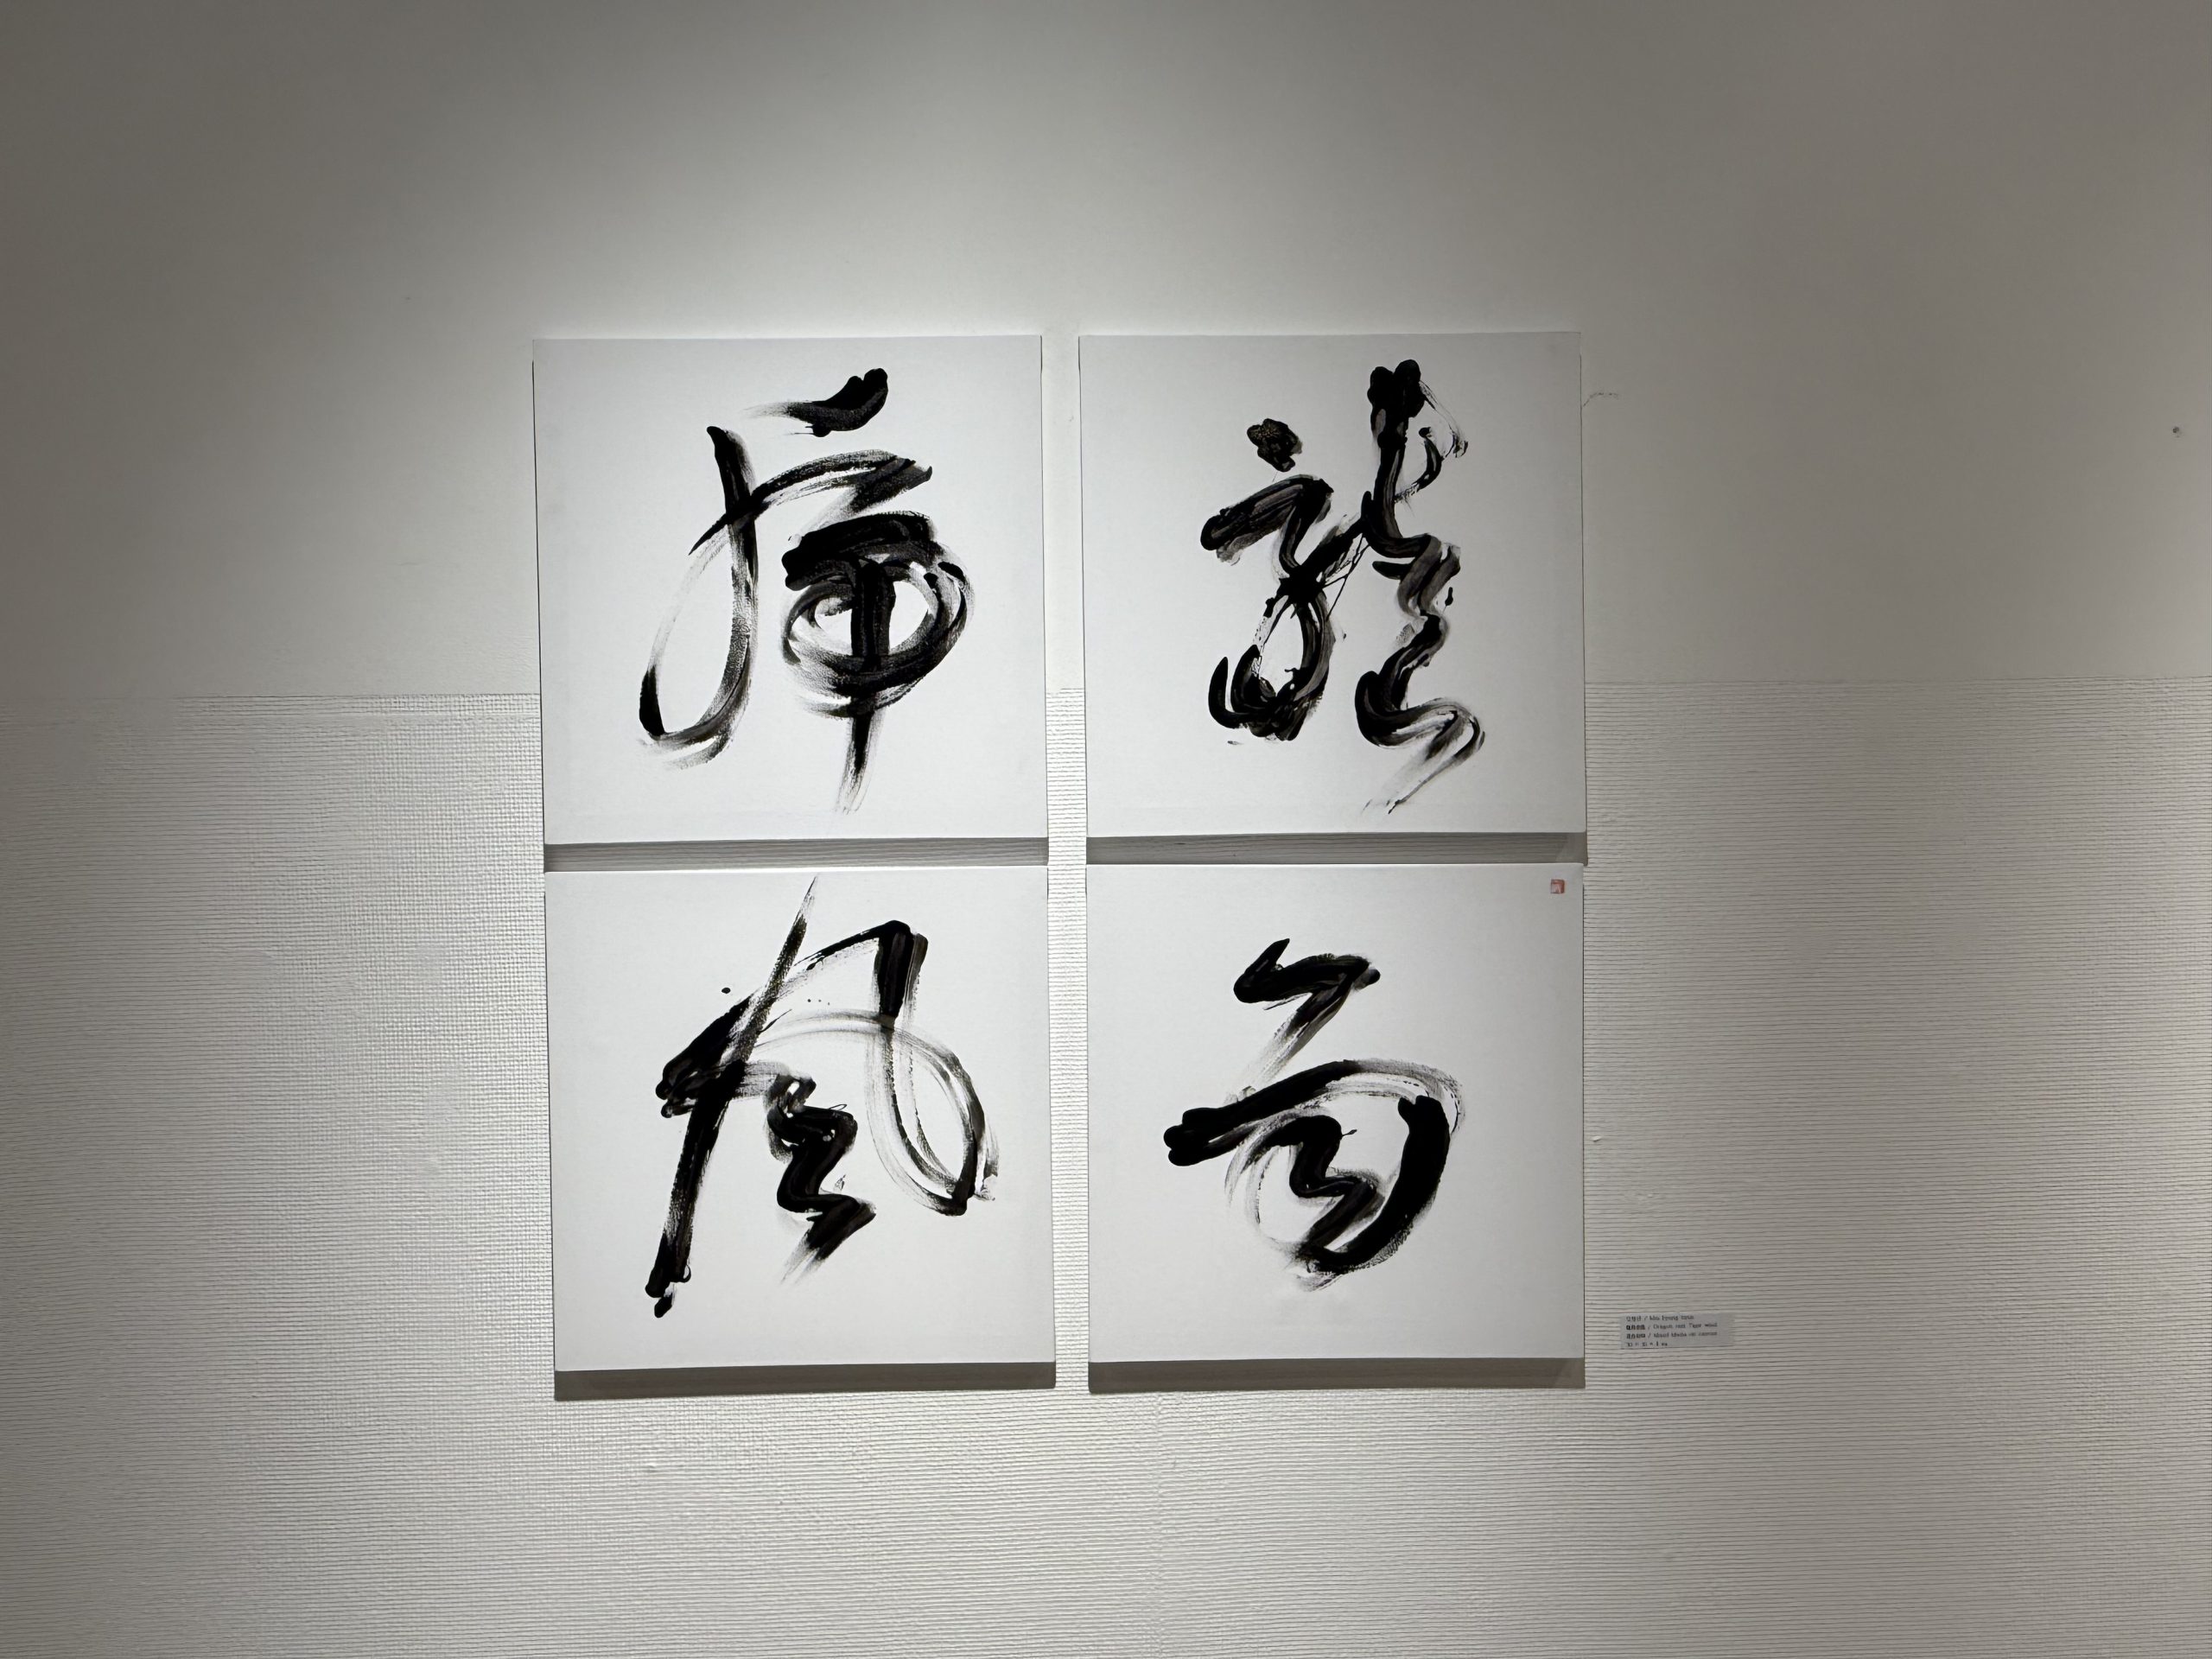 龍虎
雲風
Dragon and Tiger wind
Mixed Media on canvas